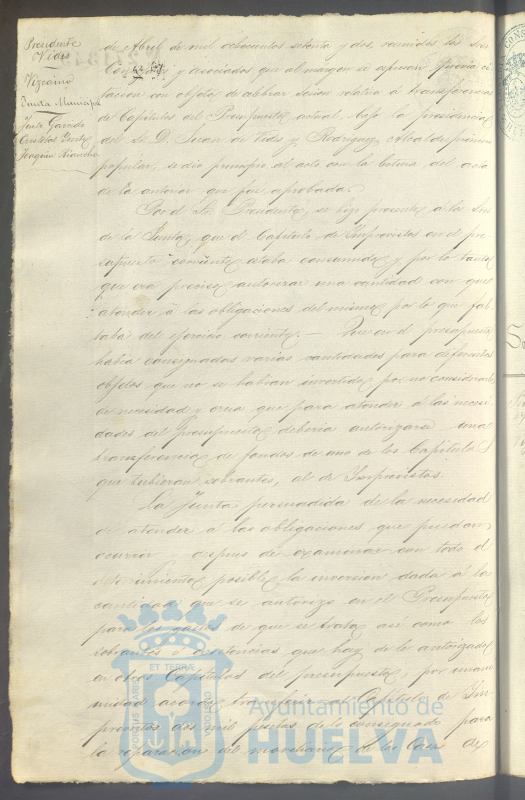 Presidente
Vides
Vizcaino
Junta Municipal
Joaquin Riancho
de Abril de mil ochocientos setenta y dos, reunidos los Sres
y asociados que al margen se espresan
lacion con objeto de celebrar sesion relativa á transferencias
de Capitulos del Presupuesto actual, bajo la presidencia
del Sr. D. Juan de Vides y Rodriguez, Alcalde primero
popular, se dio principio al acto con la lectura del acta
de la anterior que fue aprobada.
Por el Sr. Presidente, se hizo presente á los Sres
de la Junta, que el Capitulo de Imprevistos en el pre
supuesto corriente estaba consumido, y por lo tanto
que era preciso autorizar una cantidad con que
atender á las obligaciones del mismo, por lo que fal
taba del ejercicio corriente. — Que en el presupuesto
habia consignadas varias cantidades para diferentes
objetos que no se habian invertido, por no considerarlo
de necesidad y creia que para atender á las necesi
dades del presupuesto deberia autorizarse una
transferencia de fondos de uno de los Capitulos
que tubieran sobrantes, al de Imprevistos.
La Junta persuadida de la necesidad
de atender á las obligaciones que puedan
ocurrir y despues de examinar con todo el
detenimiento posible la inversion dada á la
cantidad que se autorizo en el Presupuesto
para los gastos de que se trata, asi como los
sobrantes ó existencias que hay de lo autorizado
en otros Capitulos del presupuesto, por unani
midad acordó Capitulo de Im
previstos dos mil pesetas de lo consignado para
la reparacion del de las Casas de
Ayuntamiento de
HUELVA
ET TERRÆ
PORTUS MARIS
CUSTODIA